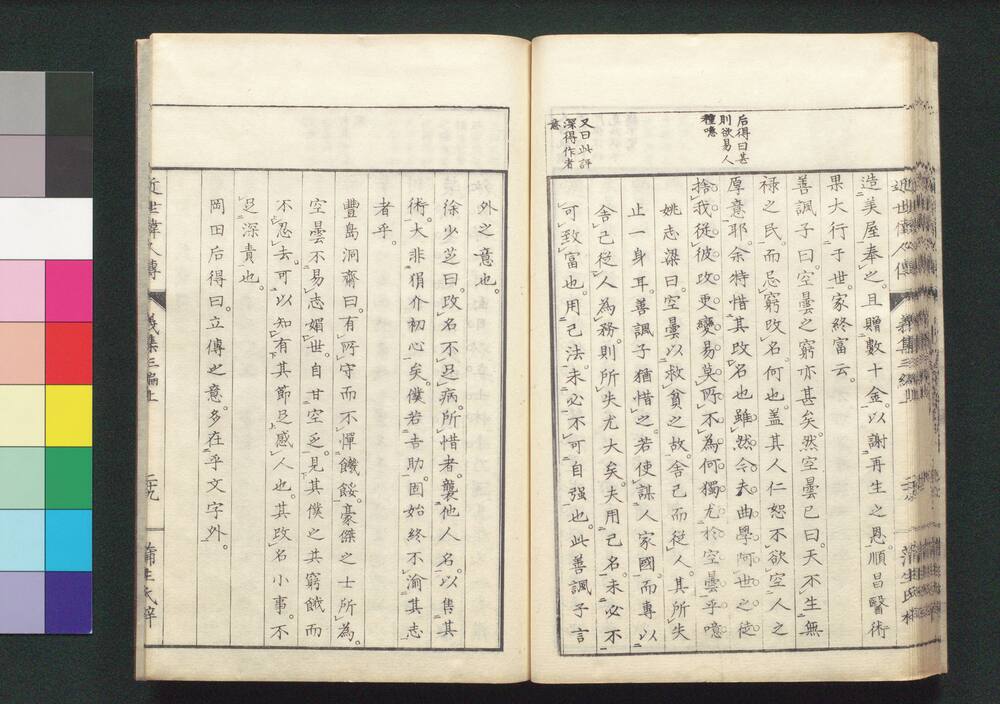 近世偉人傳
義集三編上
蒲生氏梓
后得曰甚
則欲易人
種噫
又曰此評
深得作者
意
造美屋奉之。且贈數十金。以謝再生之恩。順昌醫術
果大行于世。家終富云。
善諷子曰。空曇之窮亦甚矣。然空曇已曰。天不生無
祿之民。而忌窮改名。何也。蓋其人仁恕不欲空人之
厚意耶。余特惜其改名也。雖然今夫曲學阿世之徒。
捨我從彼。改更變易。莫所不為。何獨尤於空曇乎。噫
姚志梁曰。空曇以救貧之故。舍己而從人。其所失
止一身耳。善諷子猶惜之。若使謀人家國。而專以
舍己從人為務。則所失尤大矣。夫用己名。未必不
可致富也。用己法。未必不可自强也。此善諷子言
外之意也。
徐少芝曰。改名不足病。所惜者。襲他人名。以售其
術。大非狷介初心矣。僕若吉助。固始終不渝其志
者乎。
豐島洞齋曰。有所守而不憚饑餒。豪傑之士所為。
空曇不易志媚世。自甘空乏。見其僕之其窮餓而
不忍去。可以知有其節足感人也。其改名小事。不
足深責也。
岡田后得曰。立傳之意。多在乎文字外。
近世偉人傳
義集三編上
二十九
蒲生氏梓